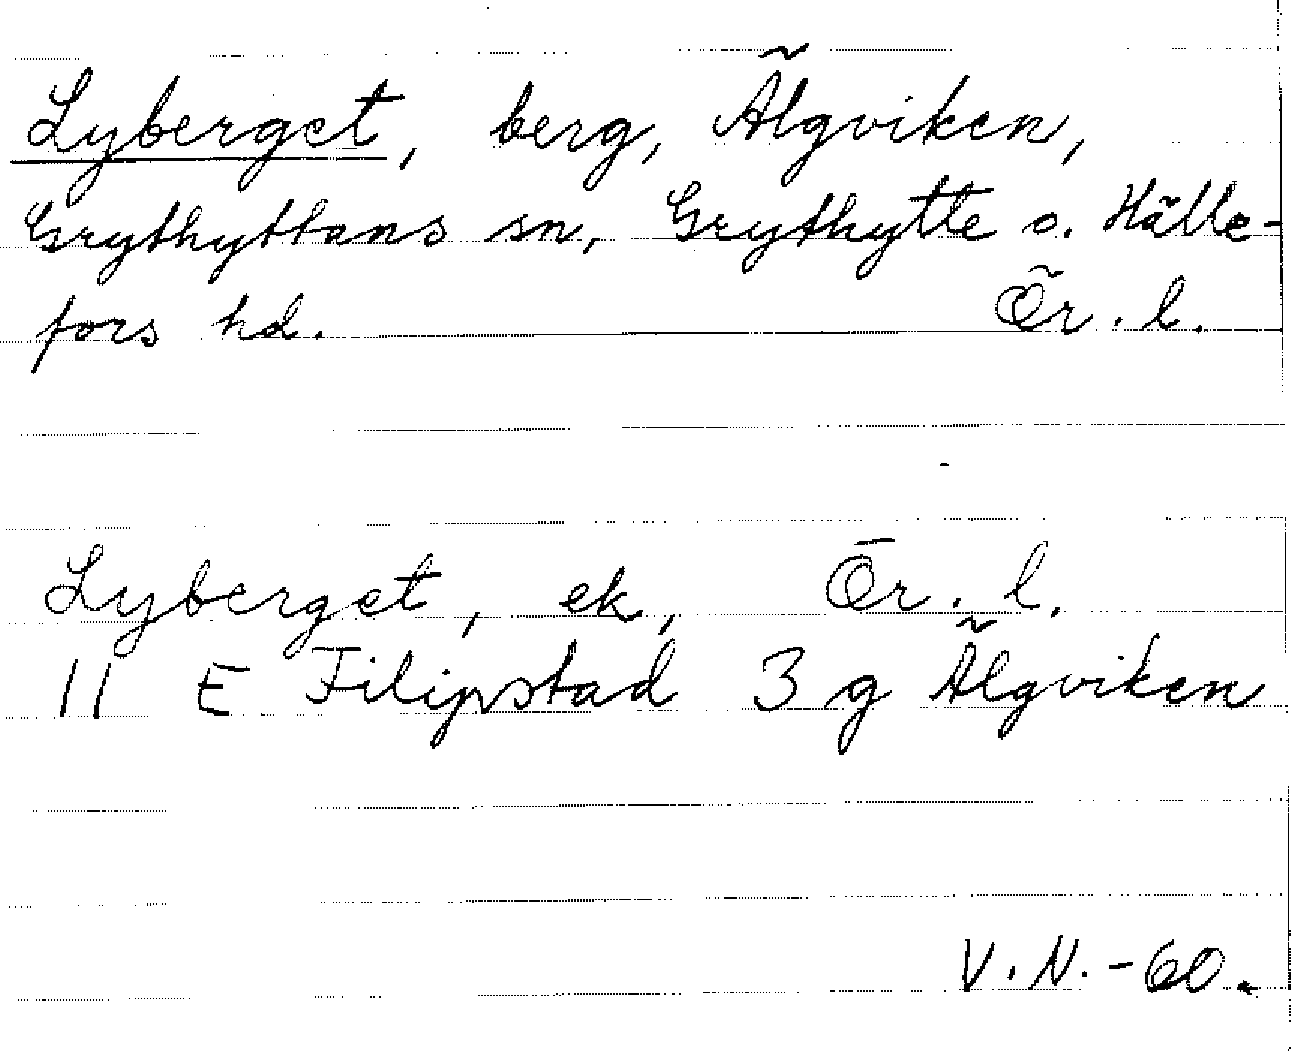 Lyberget, berg, Älgviken,
Grythyttans sn, Grythytte o. Hälle-
fors hd. Ör. l.
Lyberget, ek, Ör. l.
11 E Filipstad 3 g Älgviken
V. N. -60.